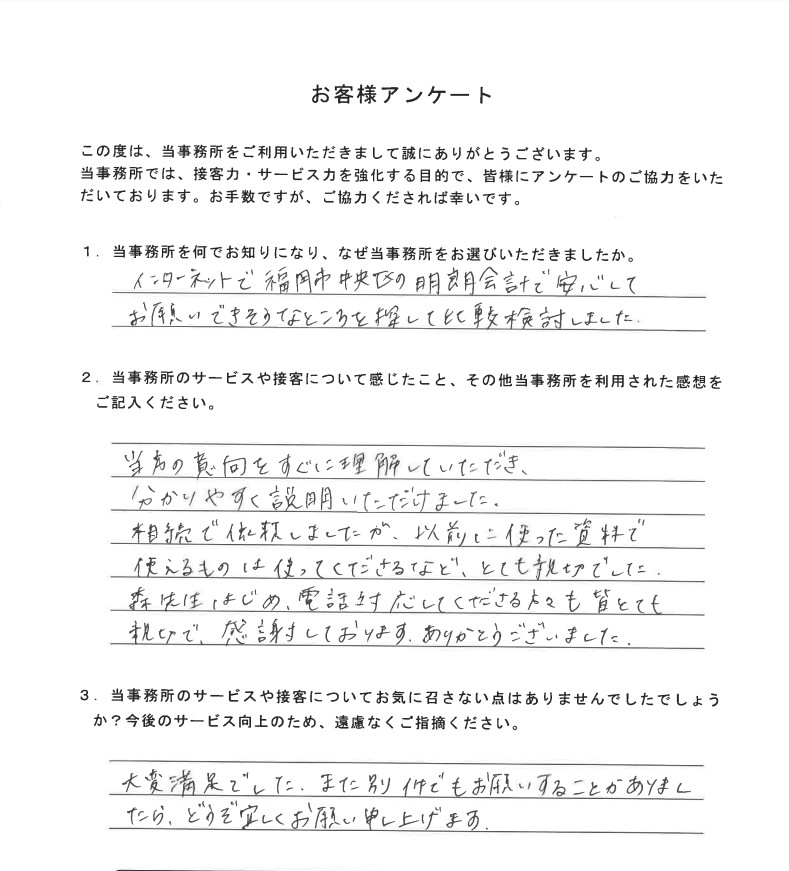 お客様アンケート
この度は、当事務所をご利用いただきまして誠にありがとうございます。
当事務所では、接客力・サービス力を強化する目的で、皆様にアンケートのご協力をいた
だいております。お手数ですが、ご協力くだされば幸いです。
1．当事務所を何でお知りになり、なぜ当事務所をお選びいただきましたか。
インターネットで福岡市中央区の明朗会計で安心して
お願いできそうなところを探して比較検討しました.
2．当事務所のサービスや接客について感じたこと、その他当事務所を利用された感想を
ご記入ください。
当方の意向をすぐに理解していただき、
分かりやすく説明いただけました。
相続で依頼しましたが、以前に使った資料で
使えるものは使ってくださるなど、とても親切でした.
森先生はじめ、電話対応してくださる方々も皆とても
親切で、感謝しております.ありがとうございました.
3．当事務所のサービスや接客についてお気に召さない点はありませんでしたでしょう
か？今後のサービス向上のため、遠慮なくご指摘ください。
大変満足でした.また別件でもお願いすることがありまし
たら、どうぞ宜しくお願い申し上げます.